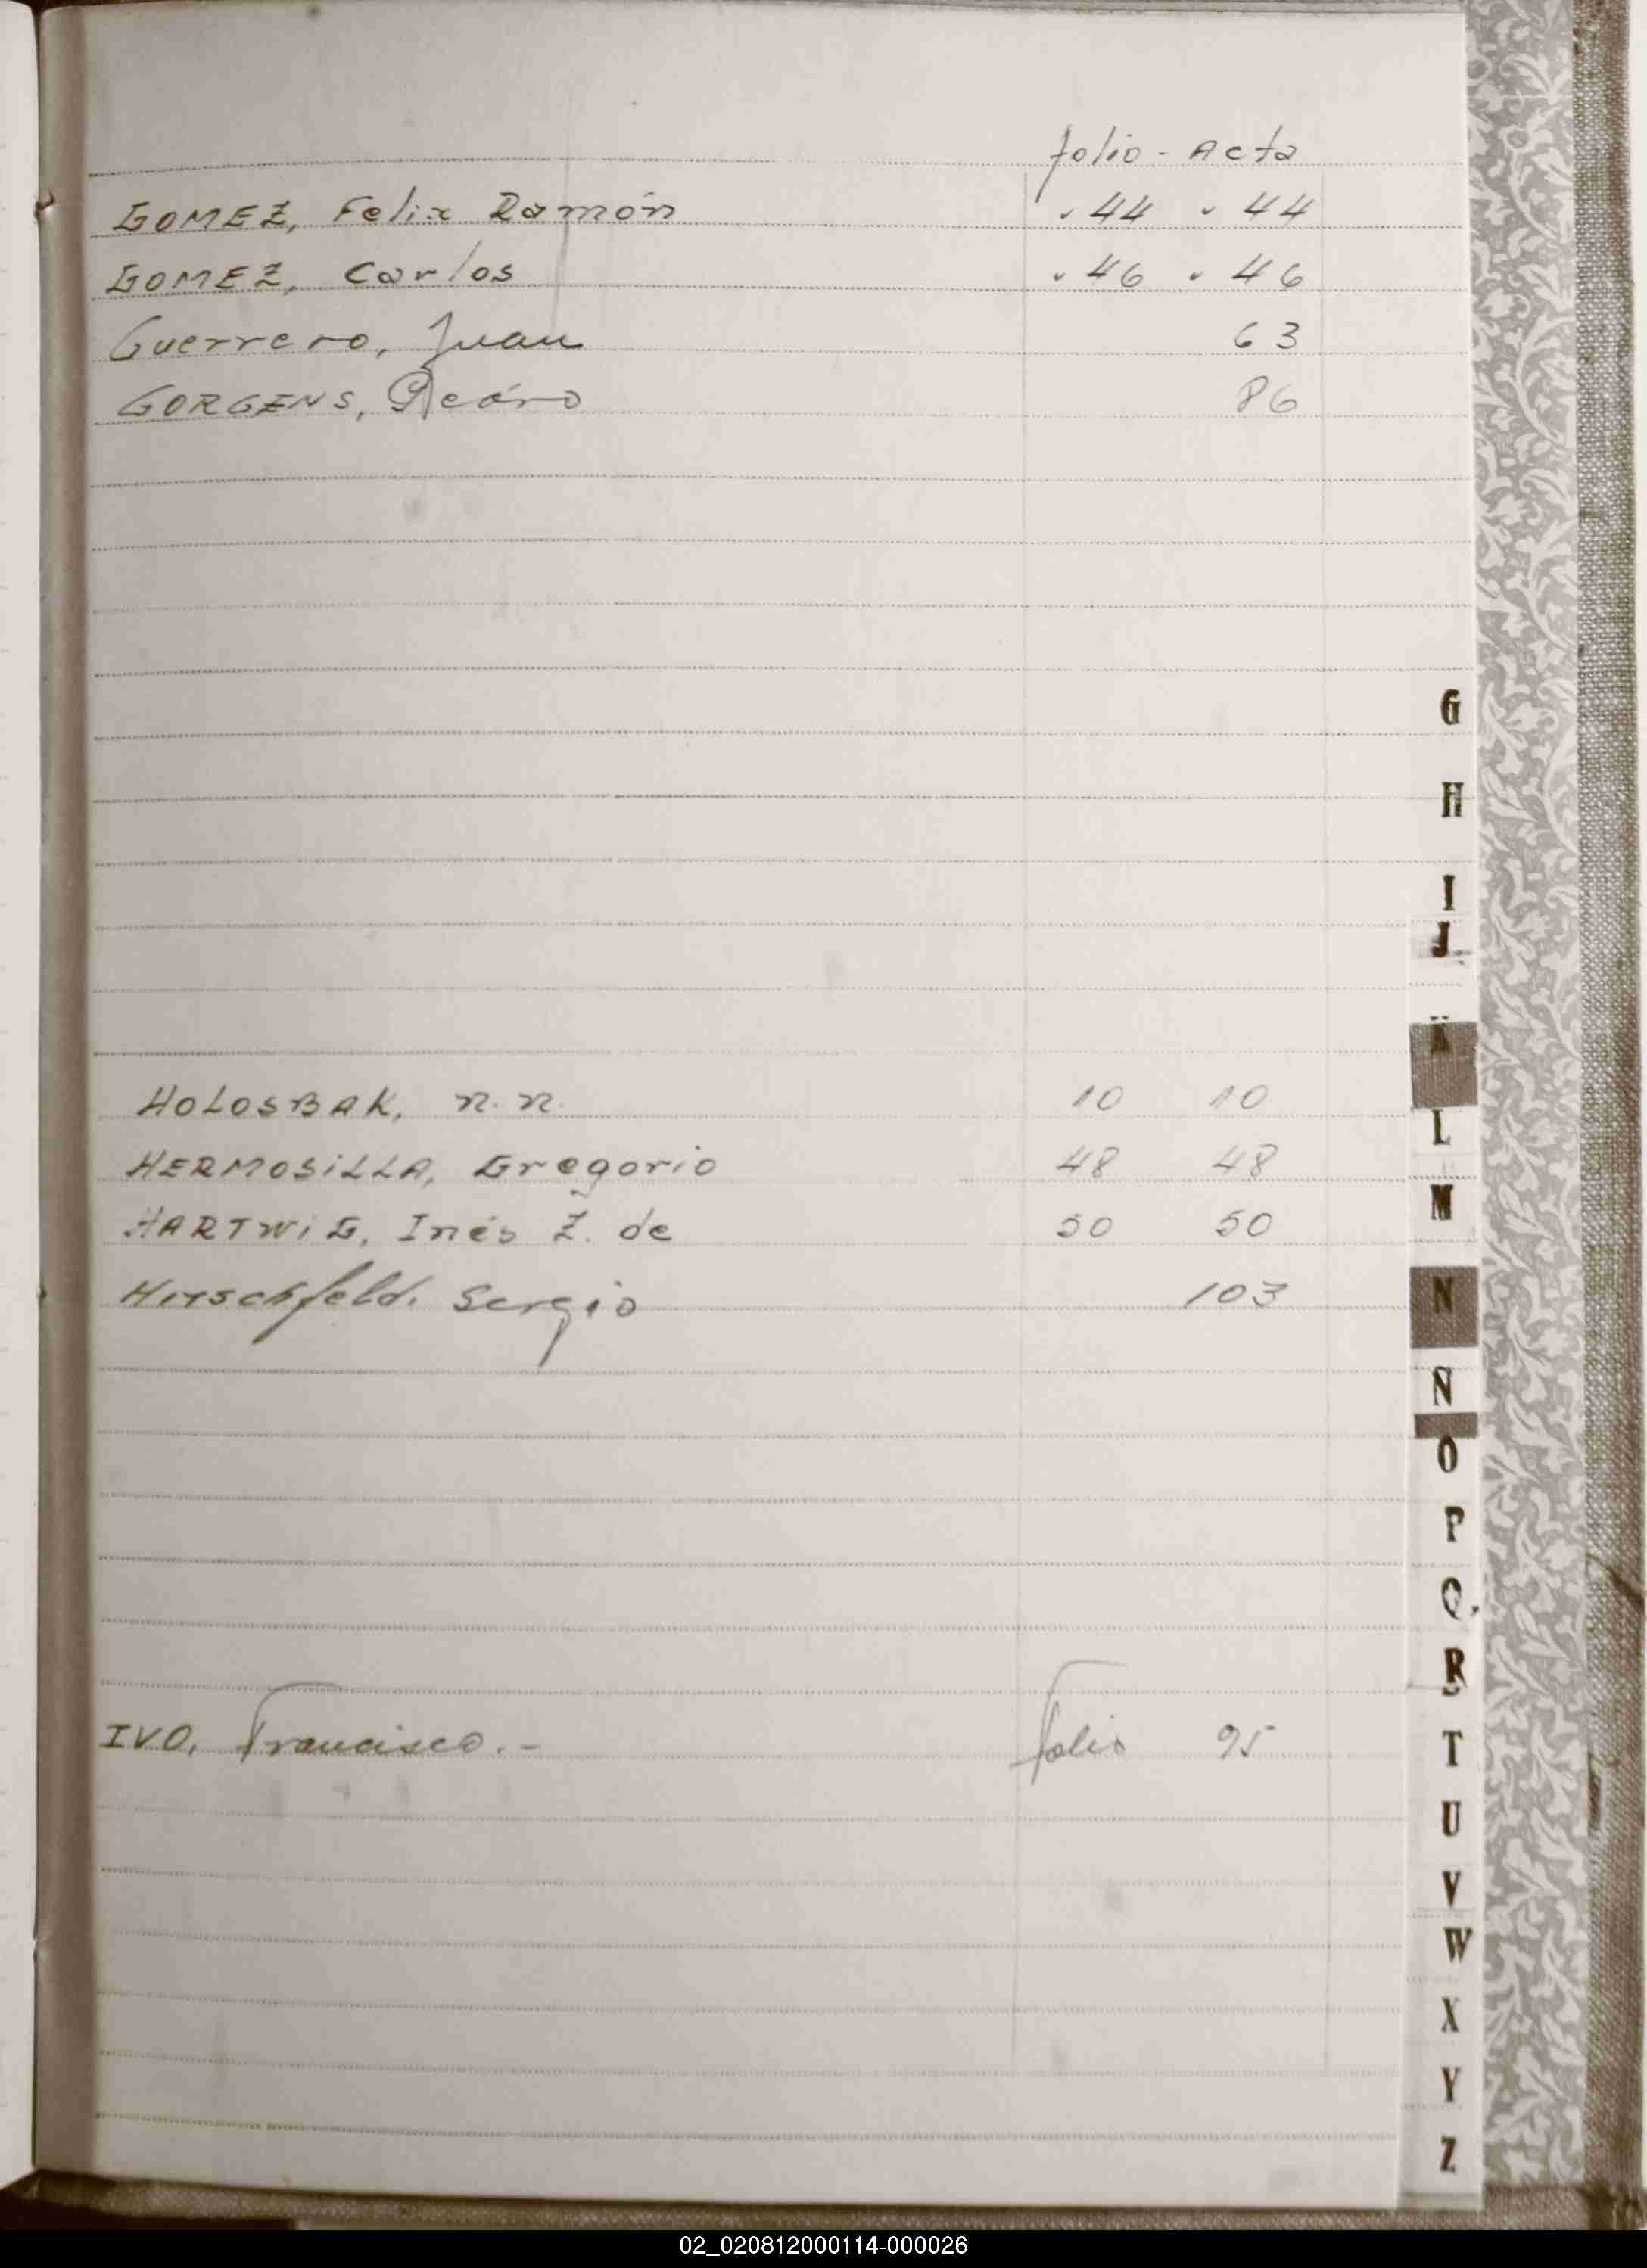 folio - Acta
GOMEZ, Felix Ramón 44 44
GOMEZ, Carlos 46 46
Guerrero, Juan 63
GORGENS, Pedro 86
G
H
I
J
K
HOLOSBAK, n.n. 10 10
L
HERMOSiLLA, Gregorio 48 48
M
HARTWiG, Inés Z. de 50 50
Hirschfeld, Sergio 103
N
Ñ
O
P
Q
R
S
IVO, Francisco.- folio 95
T
U
V
W
X
Y
Z
02_020812000114-000026